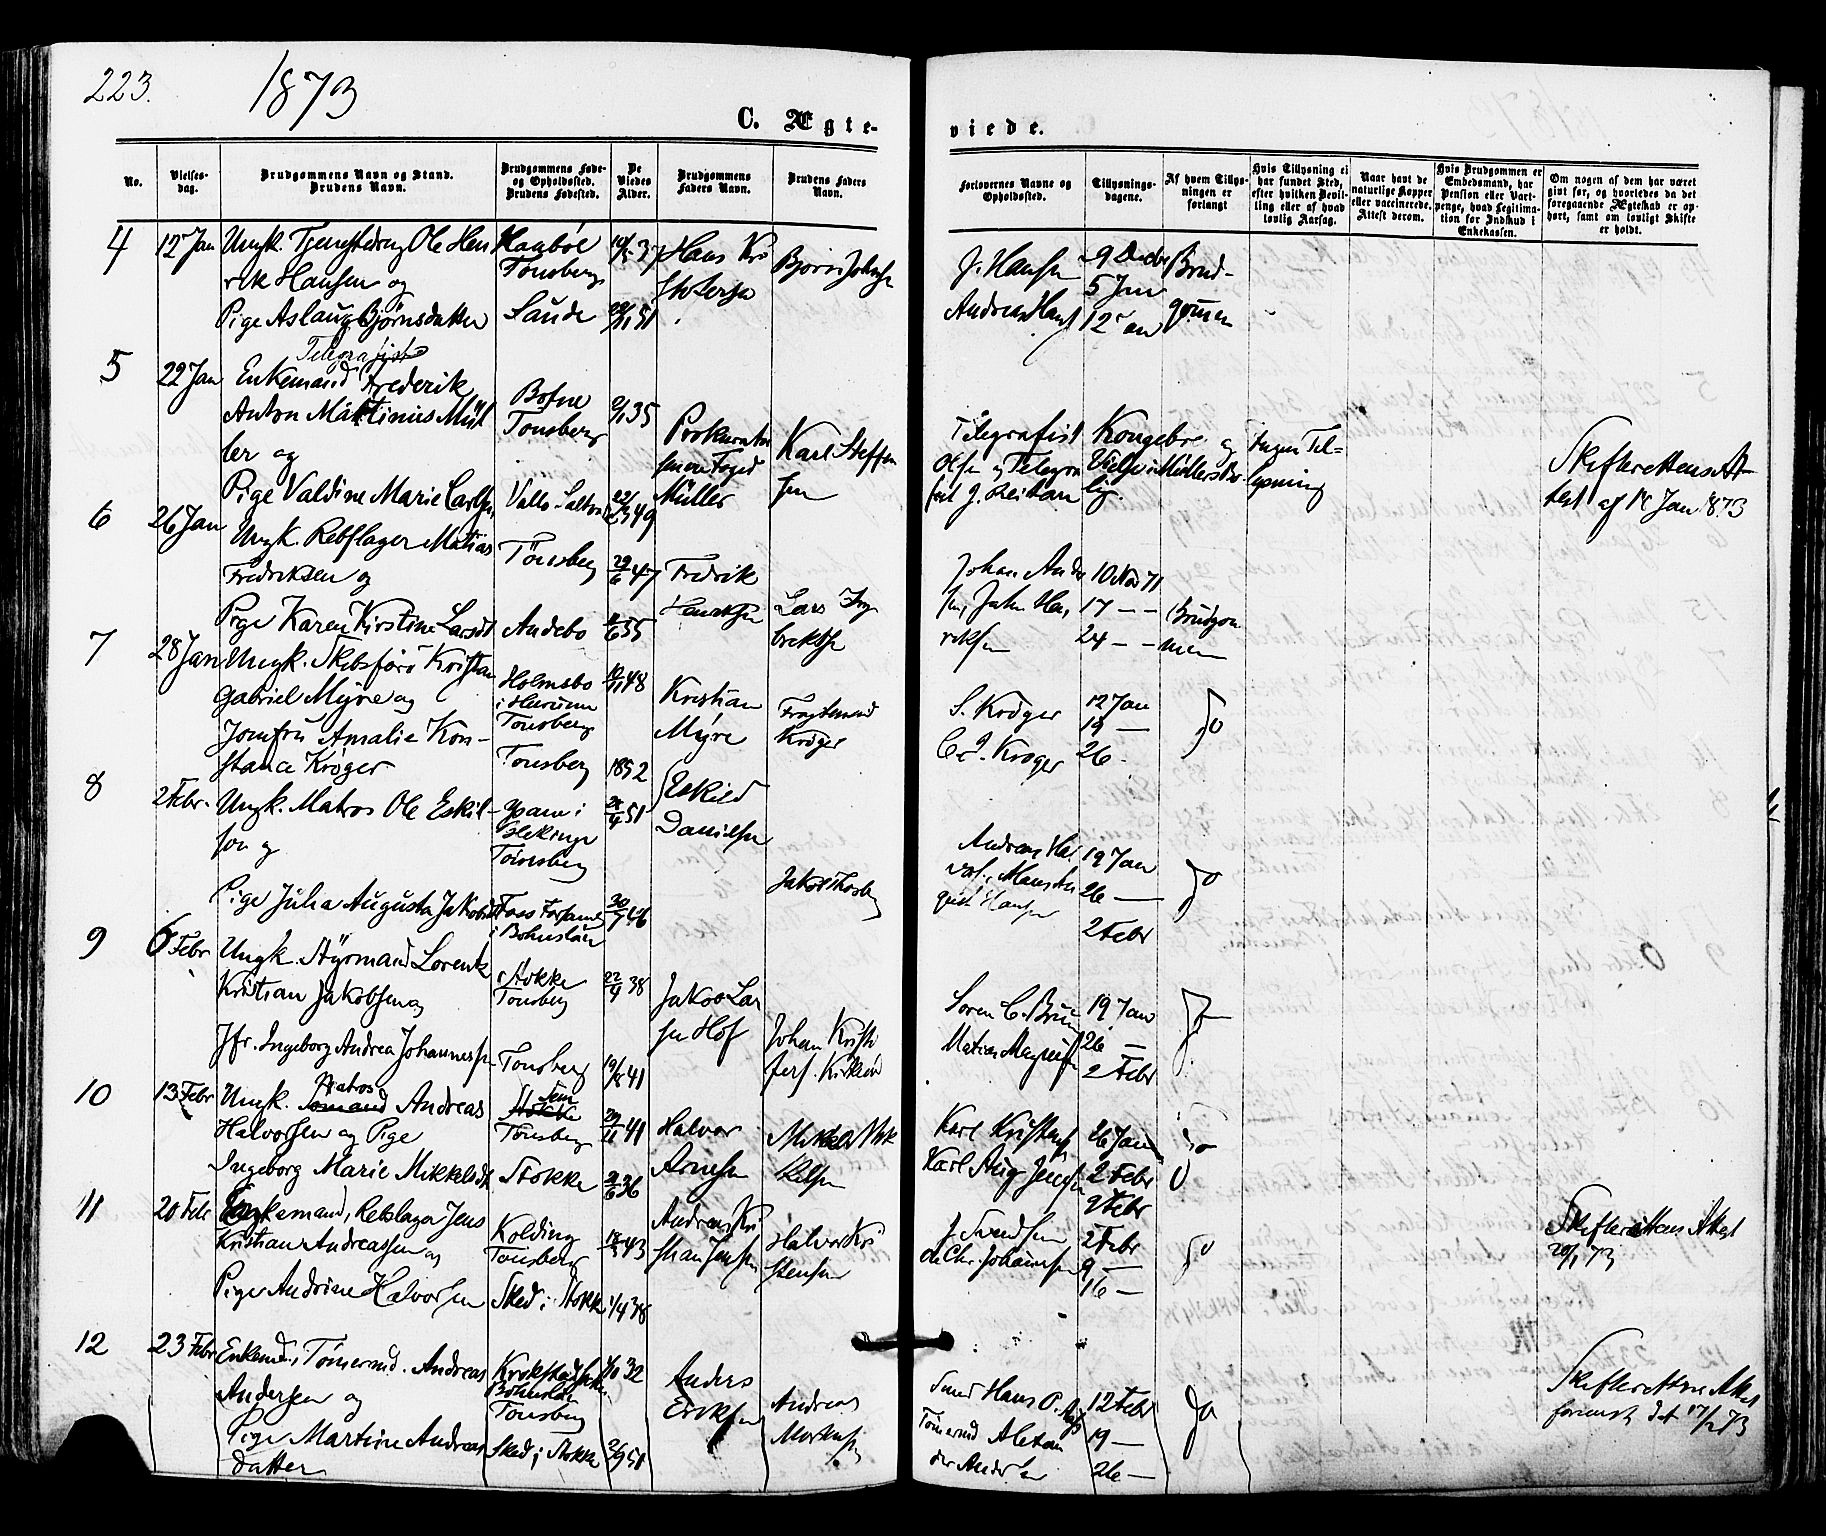 223.
1873
C. Ægte-
viede.
No.
Vielses-
dag.
Brudgommens Navn og Stand.
Brudens Navn.
Brudgommens Føde-
og Opholdssted.
Brudens Fødested.
De
Viedes
Alder.
Brudgommens
Faders Navn.
Brudens Faders
Navn.
Forlovernes Navne og
Opholdssted.
Tillysnings-
dagene.
Af hvem Tillys-
ningen er
forlangt
Hvis Tillysning ei
har fundet Sted,
efter hvilken Bevil-
ling eller af hvad
lovlig Aarsag.
Naar havt de
naturlige Kopper
eller vaccinerede.
Attest derom.
Hvis Brudgommen er
Embedsmand, har
Pension eller Vart-
penge, hvad Legitima-
tion for Indskud i
Enkekassen.
Om nogen af dem har været
gift før, og hvorledes da det
foregaaende Ægteskab er op-
hørt, samt om lovligt Skifte
er holdt.
4
12 Jan
Ungk. Tjenestedreng Ole Hen
rik Hansen og
Pige Aslaug Bjørnsdatter
Tønsberg
Saude
Hans Kri
stofersen
Bjørn Johnsen
J. Hansen
Andreas Hans
9 Decbr
5 Jan
12 Jan
Brud-
gommen
5
22 Jan
Telegrafist
Enkemand Frederik
Anton Martinus Mül
ler og
Pige Valdine Marie Carlsen
Tønsberg
Vallo Saltværk
2/1 35
22/ 49
Prokurator
Foged
Müller
Karl Steffen
sen
Telegrafist
Olsen og Telegra
fist J.
Kongebre og
Vielse i Müllers Bo
lig.
Ingen Til-
lysning
Skifterettens At-
test af Jan 1873
6
26 Jan
Ungk. Rebslager Matias
Fredriksen og
Pige Karen Kirstine Larsdt
Tönsberg
Andebo
29/6 47
/6 55
Fredrik
Henriksen
Lars Ing
brektsen
Johan Ander
sen, John Hen
riksen
10 Nov 71
17 - -
24 - -
Brudgom
men
7
28 Jan
Ungk. Skibsförer Kristan
Gabriel Myre og
Jomfru Amalie Kon-
stanca Krøger
Holmsbo
i Hurum
Tonsberg
Tonsberg
10/11 48
1852
Kristian
Myre
Fragtemand
Krøger
S. Krøger
C. J. Krøger
12 Jan
19 -
26 -
Do
8
2 Febr.
Ungk. Matros Ole Eskil-
son og
Pige Julia Augusta Jakobsdt
i
Blekinge
Tönsberg
Foss Forsaml
i Bohuslän
/4 51
30/7 46
Eskild
Danielsen
Jakob
Andreas Hal
vors. Mans An
quist Hansen
19 Jan
26 -
2 Febr
Do
9
6 Febr
Ungk. Styrmand Lorentz
Kristian Jakobsen og
Jfr. Ingeborg Andrea Johannessen
Stokke
Tonsberg
Tonsberg
22/4 38
19/8 41
Jakob Lar
sen Hof
Johan Kristi
Soren C. Bruun
Matias
19 Jan
26 -
2 Febr
10
13 Febr
Matros
Ungk. Sömand Andreas
Halvorsen og Pige
Ingeborg Marie Mikkelsdt
Sem
Stokke
Tönsberg
Stokke
29/11 41
/6 36
Halvor
Arnesen
Mikkel Mik
kelsen
Karl Kristens
Karl Aug Jensen
26 Jan
2 Febr
9 Febr
Do
11
20 Febr
Enkemand, Rebslager Jens
Kristian Andreassen og
Pige Andrine Halvorsen
Kolding
Tonsberg
Sked i Stokke
43
1/4 38
Andreas Kri
stian Jensen
Halvor Kri
stensen
J. Svendsen
Ole Chr. Johannesen
2 Febr
9 -
16 -
Do
Skifterettens Attest
20/1 73
12
23 Febr
Enkemd., Tömermd. Andreas
Andersen og
Pige Martine Andreas
datter
Bohuslän
Tonsberg
Sked i Stokke
/10 32
2/9 51
Anders
Eriksen
Andreas
Smed Hans P.
Tömermd Alexan
der Andersen
12 Febr
19 -
26 -
Do
Skifterettens Attest
forevist det 17/2 73